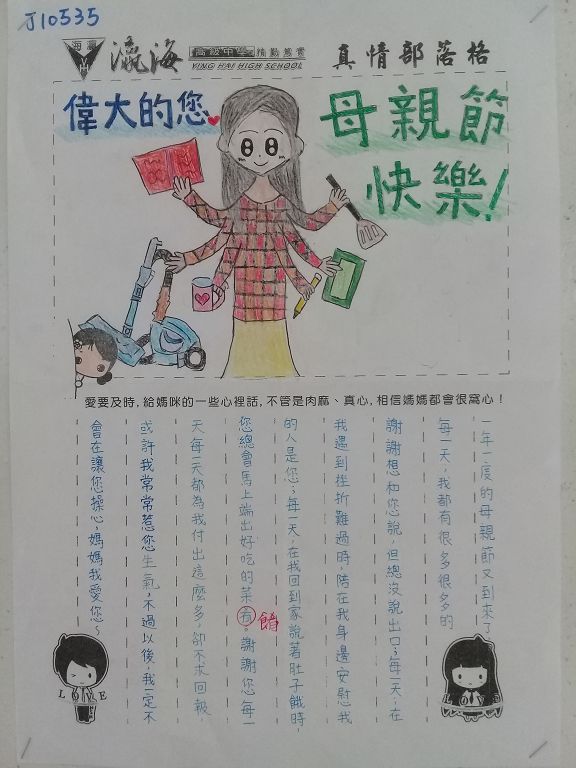 J10535
瀛海 高級中學
YING HAI HIGH SCHOOL
真情部落格
偉大的您
母親節
快樂!
愛要及時,給媽咪的一些心裡話,不管是肉麻、真心,相信媽媽都會很窩心!
一年一度的母親節又到來了
每一天,我都有很多很多的
謝謝想和您說,但總沒說出口;每一天,在
我遇到挫折難過時,陪在我身邊安慰我
的人是您;每一天,在我回到家說著肚子餓時,
您總會馬上端出好吃的菜肴。謝謝您每一
餚
天每一天都為我付出這麼多,卻不求回報,
或許我常常惹您生氣,不過以後,我一定不
會在讓您操心,媽媽我愛您~
LOVE
LOVE